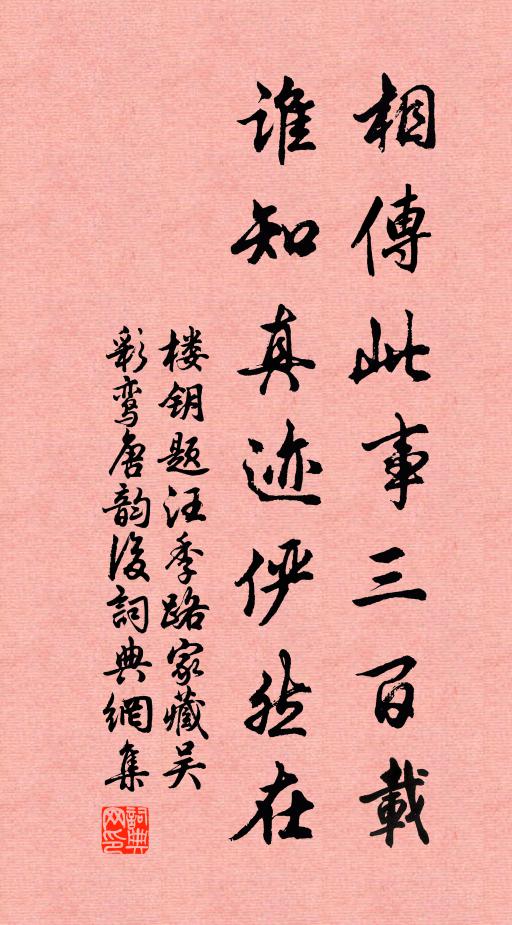 相傳此事三百載
谁知真迹俨然在
楼钥题汪季路家藏吴
彩鸾唐韵后詞典網集
詞典网印